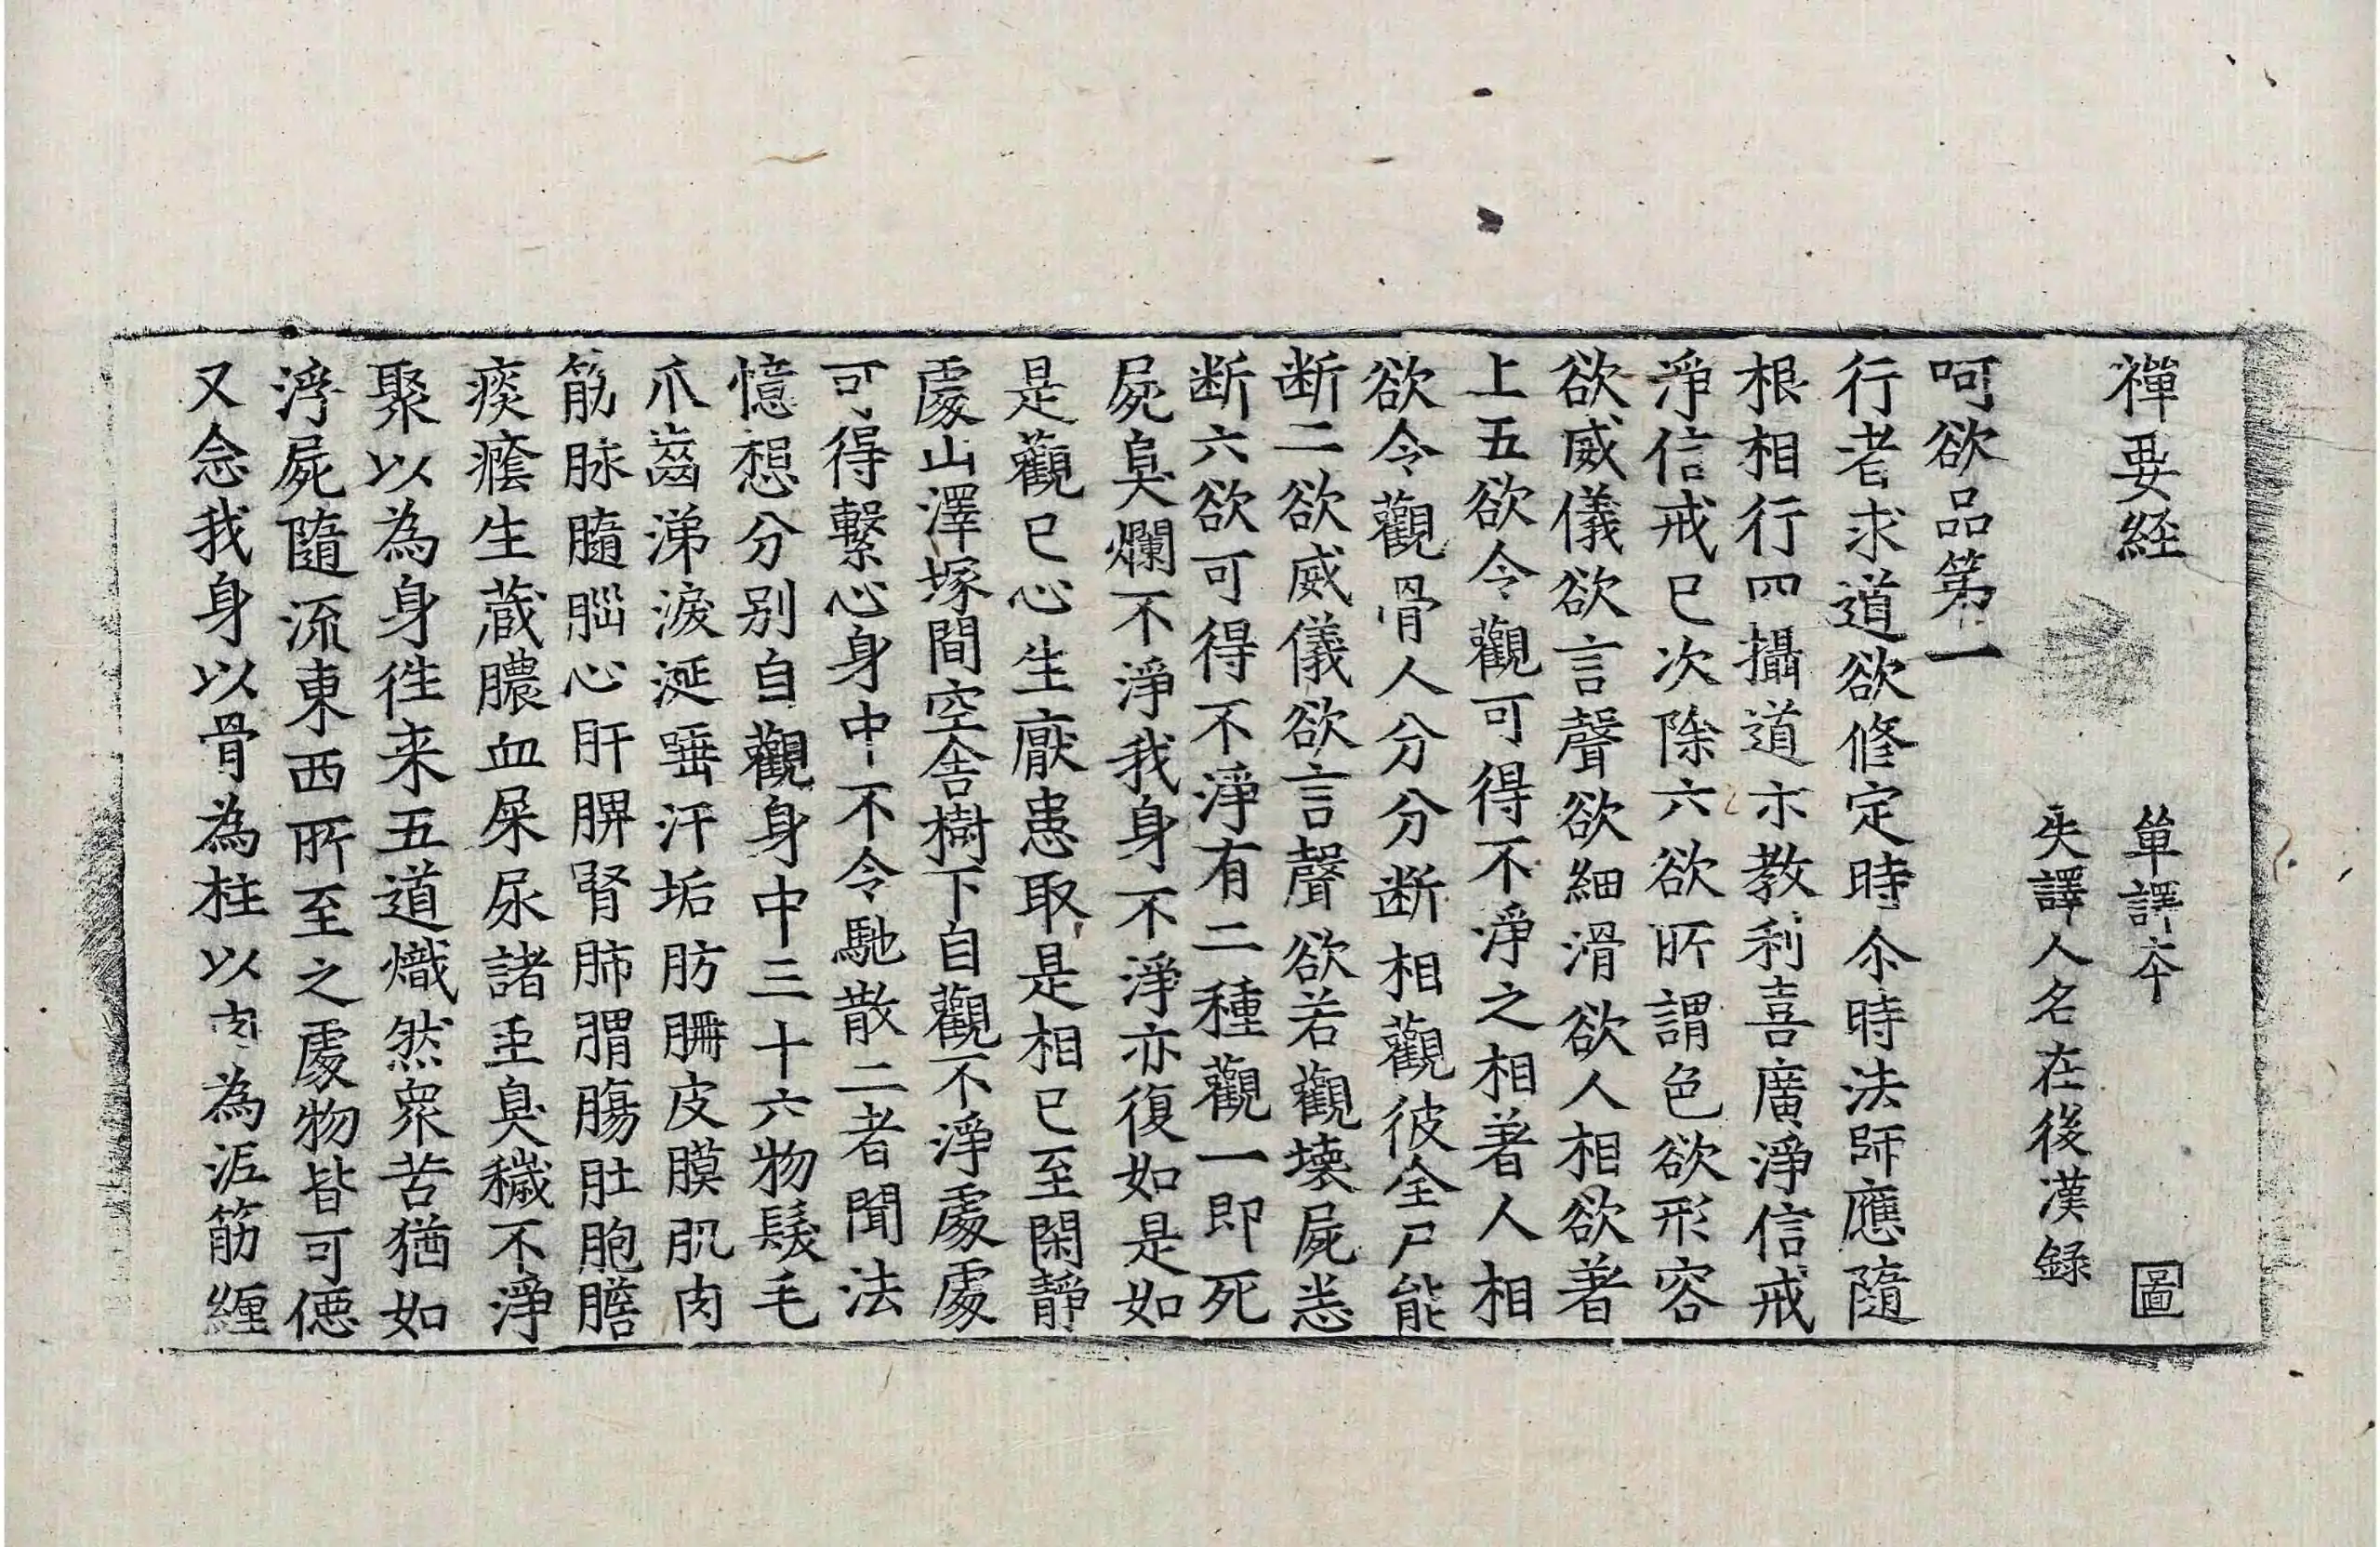 禪要經　單譯夲　圖
失譯人名在後漢録
呵欲品第一
行者求道欲修定時尒時法師應隨
根相行四攝道示教利喜廣淨信戒
淨信戒已次除六欲所謂色欲形容
欲威儀欲言聲欲細滑欲人相欲著
上五欲令觀可得不淨之相著人相
欲令觀骨人分分断相觀彼全尸能
断二欲威儀欲言聲欲若觀壊屍悉
断六欲可得不淨有二種觀一即死
屍臭爛不淨我身不淨亦復如是如
是觀已心生厭患取是相已至閑静
處山澤塚間空舎樹下自觀不淨處處
可得繫心身中不令馳散二者聞法
憶想分别自觀身中三十六物髮毛
爪齒涕淚涎唾汗垢肪𦙱皮膜肌肉
筋脉髓腦心肝脾腎肺胃腸肚胞膽
痰癊生蔵膿血屎尿諸虫臭穢不淨
聚以為身徃来五道熾然衆苦猶如
浮屍隨流東西所至之處物皆可𢙣
又念我身以骨為柱以肉為泥筋纒